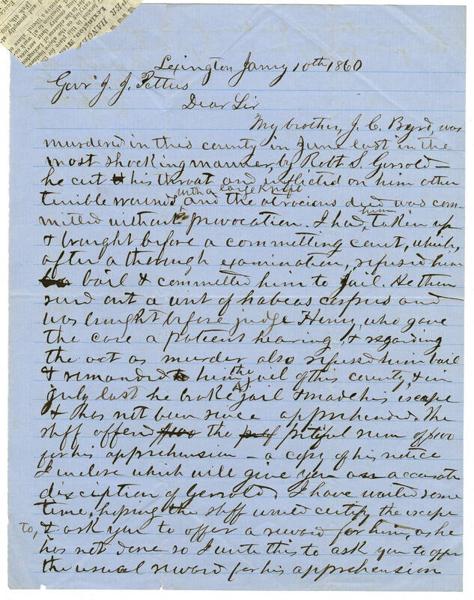 Lexington Jany 10th 1860
Govr J. J. Pettus
Dear Sir
My brother, J. C. Byrd, was
murdered in this county in June last in the
most shocking manner, by Robt S. Gerrold –
he cut his throat and inflicted on him other
with a large knife
terrible wounds, and the atrocious deed was com
mitted without provocation. I had him taken up
& brought before a committing court, which,
after a thorough examination, refused him
bail & committed him to jail. He then
sued out a writ of habeas corpus and
was brought before judge Henry, who gave
the case a patient hearing & regarding
the act as murder also refused him bail
& remanded him the jail of this county, & in
July last he broke jail & made his escape
& has not been since apprehended. The
shff offered the pitiful sum of $100
for his apprehension – a copy of his notice
I inclose which will give you an accurate
discription of Gerrold. I have waited some
time, hoping the shff would certify the escape
to, & ask you to offer a reward for him, as he
has not done so I write this to ask you to offer
the usual reward for his apprehension